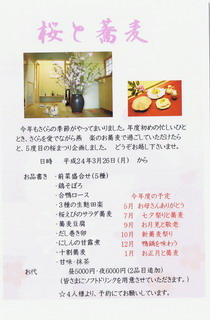 桜と蕎麦
今年もさくらの季節がやってまいりました。年度初めの忙しいひと
とき、さくらを愛でながら燕 楽のお蕎麦で過ごしていただけたら
と、5度目の桜まつり企画しました。 どうぞお越し下さいませ。
日時 平成24年3月26日(月) から
お品書き ・前菜盛合せ(5種)
・鶏そぼろ
・合鴨ロース
・3種の生麩田楽
・桜えびのサラダ蕎麦
・蕎麦豆腐
・だし巻き卵
・にしんの甘露煮
・十割蕎麦
・甘味・抹茶
今年度の予定
5月 お母さんありがとう
7月 七夕祭りと蕎麦
9月 お月見と歌会
10月 新蕎麦祭り
12月 鴨鍋を味わう
1月 お正月と蕎麦
お代 昼5000円・夜6000円(2品目追加)
(皆さまにソフトドリンクを用意させていただきます。)
☆4人様より、予約にてお願いしています。